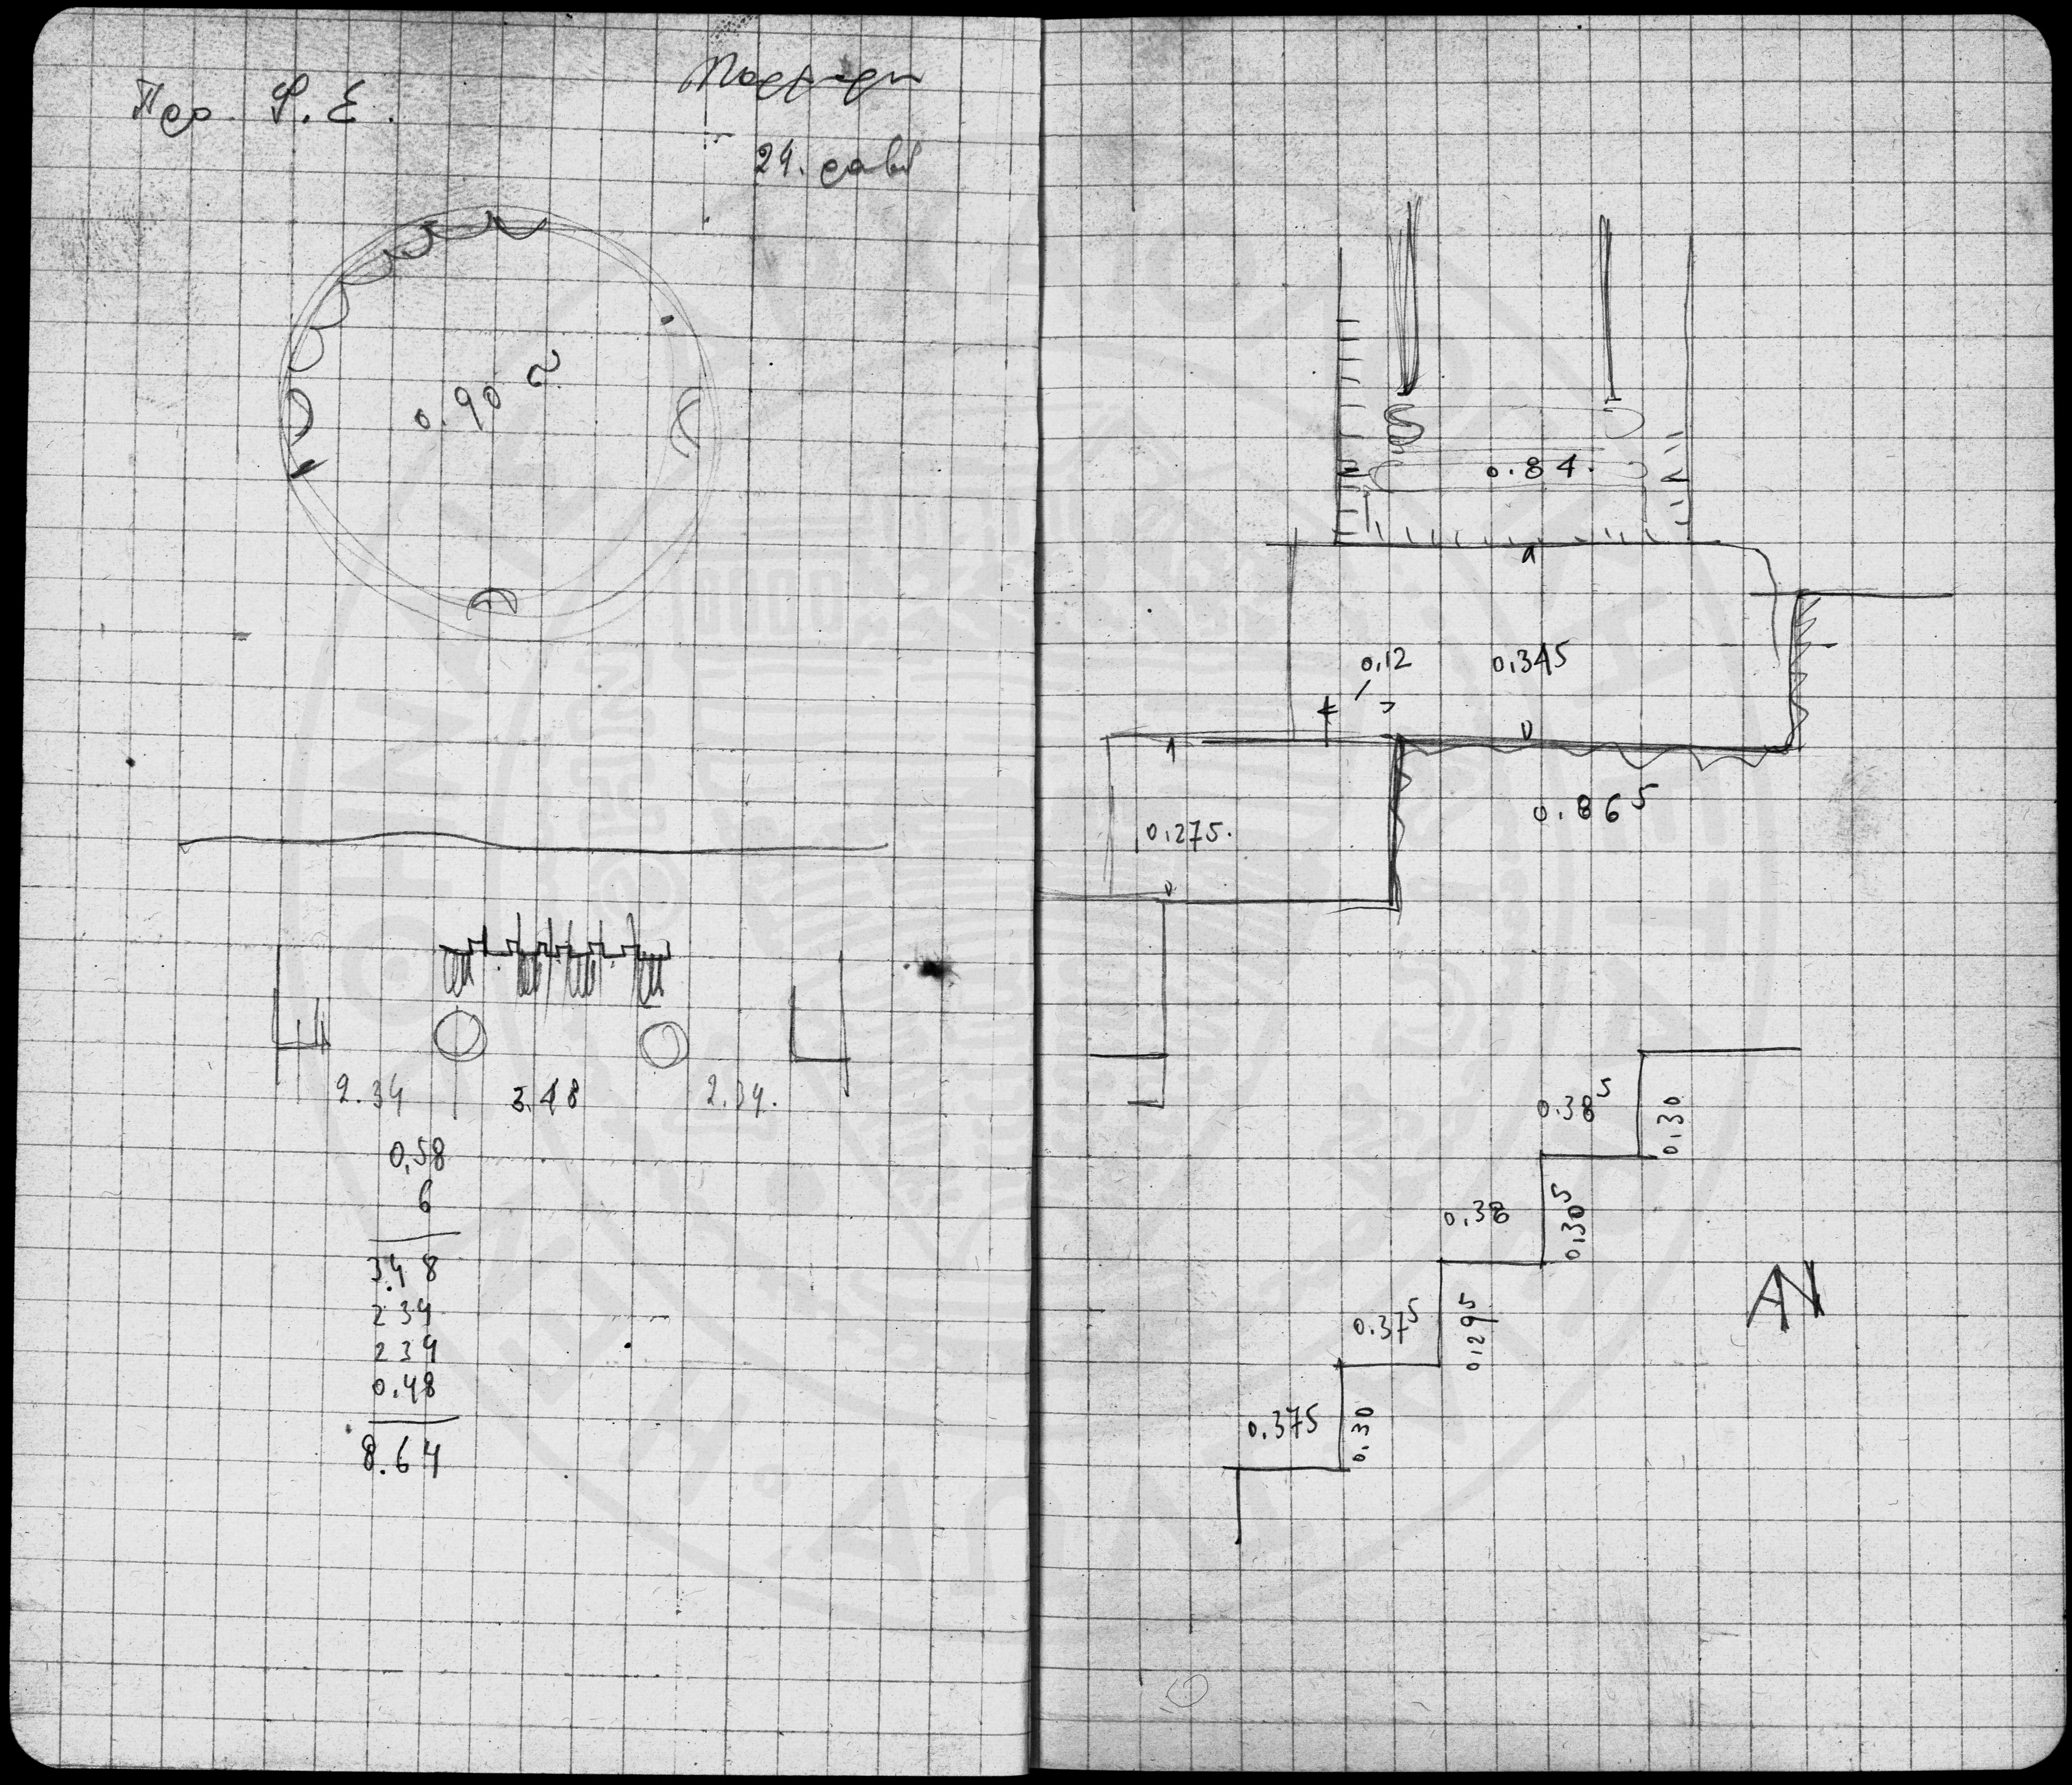 Προ. Φ. Ε.
24.
0.90
2.34 3.48 2.34.
0,58
6
3.48
2 34
2 34
0.48
8.64
0.84.
0,12 0,345
0.86⁵
0,275.
0.38⁵ 0,30
0,38 0,30⁵
0.37⁵ 0,29⁵
0.375 0.30
ΑΝ